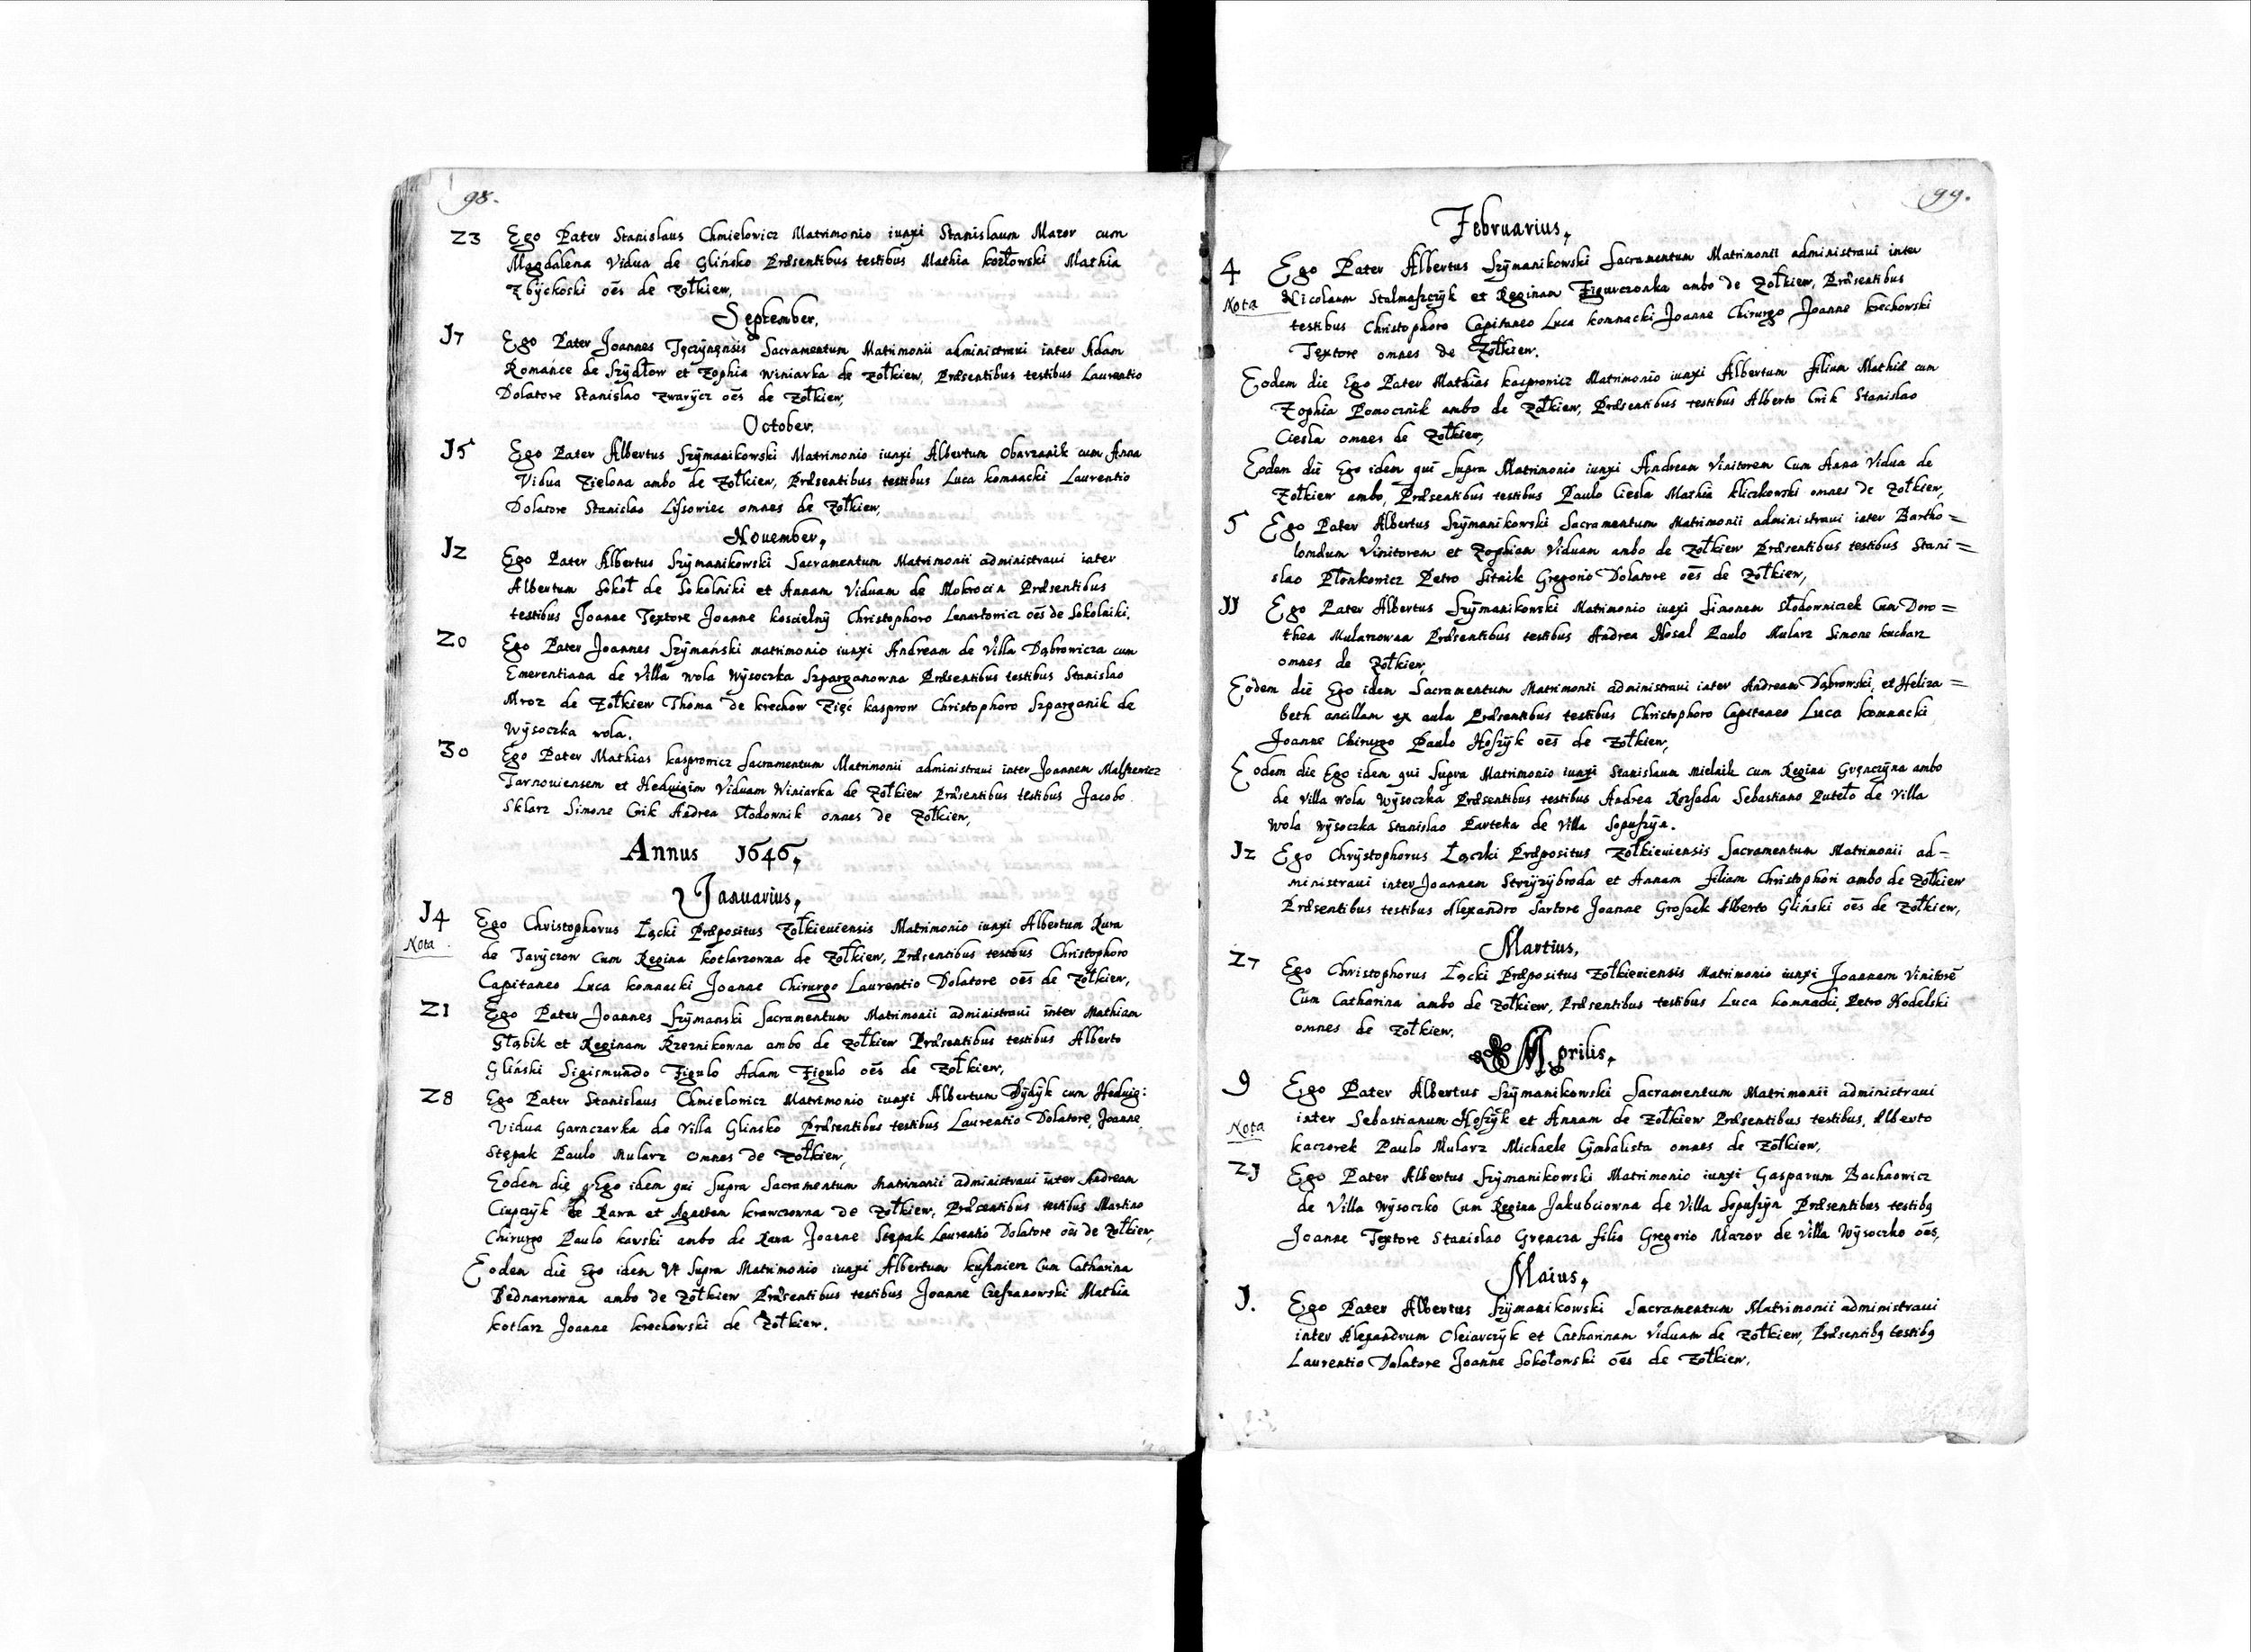 98.
23 Ego Pater Stanislaus Chmielovicz Matrimonio iunxi Stanislaum Mazor cum
Magdalena Vidua de Glińsko Præsentibus testibus Mathia kozłowski Mathia
Zbÿckoski oēs de Zołkiew,
September,
J7 Ego Pater Joannes Tęczÿnęnsis Sacramentum Matrimonii administraui inter Adam
Románce de Szÿdłow et Zophia Winiarka de Zołkiew, Præsentibus testibus Laurentio
Dolatore Stanislao Zwarÿcz oēs de Zołkiew,
October,
J5 Ego Pater Albertus Szÿmanikowski Matrimonio iunxi Albertum Obarzanik cum Anna
Vidua Zielona ambo de Zołkiew, Præsentibus testibus Luca komnacki Laurentio
Dolatore Stanislao Lisowiec omnes de Zołkiew,
November,
J2 Ego Pater Albertus Szÿmanikowski Sacramentum Matrimonii administraui inter
Albertum Sokoł de Sokolniki et Annam Viduam de Mokrocin Præsentibus
testibus Joanne Textore Joanne koscielnÿ Christophoro Lenartowicz oēs de Sokolniki.
20 Ego Pater Joannes Szÿmański matrimonio iunxi Andream de Villa Dąbrowicza cum
Emerentiana de Villa Wola Wÿsoczka Szparganowna Præsentibus testibus Stanislao
Mroz de Zołkiew Thoma de krechow Zięć kasprow Christophoro Szparganik de
Wÿsoczka wola.
30 Ego Pater Mathias kasprowicz Sacramentum Matrimonii administraui inter Joannem Malszewicz
Tarnouiensem et Heduigim Viduam Winiarka de Zołkiew Præsentibus testibus Jacobo
Sklarz Simone Cwik Andrea Słodownik omnes de Zołkiew,
Annus J646,
Januarius,
J4 Ego Christophorus Łącki Præpositus Zołkieuiensis Matrimonio iunxi Albertum Kura
Nota de Tarÿczow Cum Regina kotlarzowna de Zołkiew, Præsentibus testibus Christophoro
Capitaneo Luca komnacki Joanne Chirurgo Laurentio Dolatore oēs de Zołkiew,
21 Ego Pater Joannes Szÿmanski Sacramentum Matrimonii administraui inter Mathiam
Głąbik et Reginam Rzeznikowna ambo de Zołkiew Præsentibus testibus Alberto
Gliński Sigismundo Figulo Adam Figulo oēs de Zołkiew,
28 Ego Pater Stanislaus Chmielowicz Matrimonio iunxi Albertum Dÿdÿk cum Heduig:
Vidua Garnczarka de Villa Glinsko Præsentibus testibus Laurentio Dolatore, Joanne
Stępak Paulo Mularz omnes de Zołkiew,
Eodem die Ego idem qui Supra Sacramentum Matrimonii administraui inter Andream
Ciupczÿk de Rawa et Agnetem krawczowna de Zołkiew, Præsentibus testibus Martino
Chirurgo Paulo kawski ambo de Rawa Joanne Stępak Laurentio Dolatore oēs de Zołkiew,
Eodem die Ego idem Vt Supra Matrimonio iunxi Albertum kusznierz Cum Catharina
Bednarzowna ambo de Zołkiew Præsentibus testibus Joanne Cieszanowski Mathia
kotlarz Joanne krechowski de Zołkiew.
99.
Februarius,
4 Ego Pater Albertus Szÿmanikowski Sacramentum Matrimonii administraui inter
Nota Nicolaum Stalmaszczÿk et Reginam Figurczonka ambo de Zołkiew, Præsentibus
testibus Christophoro Capitaneo Luca komnacki Joanne Chirurgo Joanne krechowski
Textore omnes de Zołkiew.
Eodem die Ego Pater Mathias kasprowicz Matrimonio iunxi Albertum filium Mathiæ cum
Zophia Pomocznik ambo de Zołkiew, Præsentibus testibus Alberto Cwik Stanislao
Ciesla omnes de Zołkiew,
Eodem die Ego idem qui Supra Matrimonio iunxi Andream Vinitorem Cum Anna Vidua de
Zołkiew ambo, Præsentibus testibus Paulo Ciesla Mathia kliczkowski omnes de Zołkiew,
5 Ego Pater Albertus Szÿmanikowski Sacramentum Matrimonii administraui inter Bartho=
lomæum Vinitorem et Zophiam Viduam ambo de Zołkiew Præsentibus testibus Stani=
slao Płonkowicz Petro Sitnik Gregorio Dolatore oēs de Zołkiew,
JJ Ego Pater Albertus Szÿmanikowski Matrimonio iunxi Simonem Słodowniczek Cum Doro=
thea Mularzowna Præsentibus testibus Andrea Nosal Paulo Mularz Simone kucharz
omnes de Zołkiew,
Eodem die Ego idem Sacramentum Matrimonii administraui inter Andream Dąbrowski, et Heliza=
beth ancillam ex aula Præsentibus testibus Christophoro Capitaneo Luca komnacki
Joanne Chirurgo Paulo Hoszÿk oēs de Zołkiew,
Eodem die Ego idem qui Supra Matrimonio iunxi Stanislaum Mielnik cum Regina Gręnczÿna ambo
de Villa Wola Wÿsoczka Præsentibus testibus Andrea Rozsada Sebastiano Puteło de Villa
Wola Wÿsoczka Stanislao Parteka de Villa Sopuszÿn.
J2 Ego Chrÿstophorus Łączki Præpositus Zołkieuiensis Sacramentum Matrimonii ad=
ministraui inter Joannem Strzÿzÿbroda et Annam filiam Christophori ambo de Zołkiew
Præsentibus testibus Alexandro Sartore Joanne Groszek Alberto Gliński oēs de Zołkiew,
Martius,
27 Ego Christophorus Łącki Præpositus Zołkieuiensis Matrimonio iunxi Joannem Vinitorē
Cum Catharina ambo de Zołkiew, Præsentibus testibus Luca komnacki, Petro Nodelski
omnes de Zołkiew.
Aprilis,
9 Ego Pater Albertus Szÿmanikowski Sacramentum Matrimonii administraui
Nota inter Sebastianum Hoszÿk et Annam de Zołkiew Præsentibus testibus, Alberto
kaczorek Paulo Mularz Michaele Cÿmbalista omnes de Zołkiew,
2J Ego Pater Albertus Szÿmanikowski Matrimonio iunxi Gasparum Bachnowicz
de Villa Wÿsoczko Cum Regina Jakubciowna de Villa Sopuszÿn Præsentibus testibꝰ
Joanne Textore Stanislao Gręncza filio Gregorio Mazor de Villa Wÿsoczko oēs,
Maius,
J. Ego Pater Albertus Szÿmanikowski Sacramentum Matrimonii administraui
inter Alexandrum Oleiarczÿk et Catharinam Viduam de Zołkiew, Præsentibꝰ testibꝰ
Laurentio Dolatore Joanne Sokołowski oēs de Zołkiew,